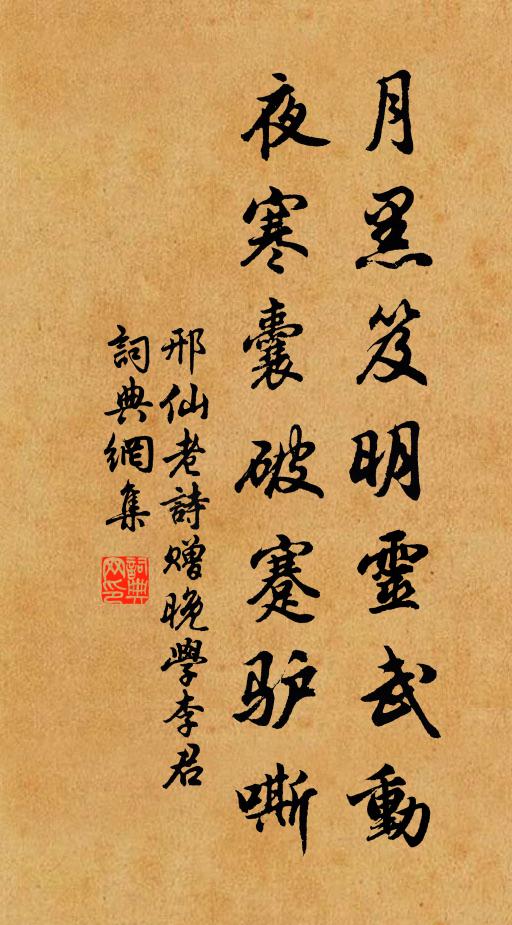 月黑笈明靈武動
夜寒囊破蹇驴嘶
邢仙老詩贈晚學李君
詞典網集
詞典网印